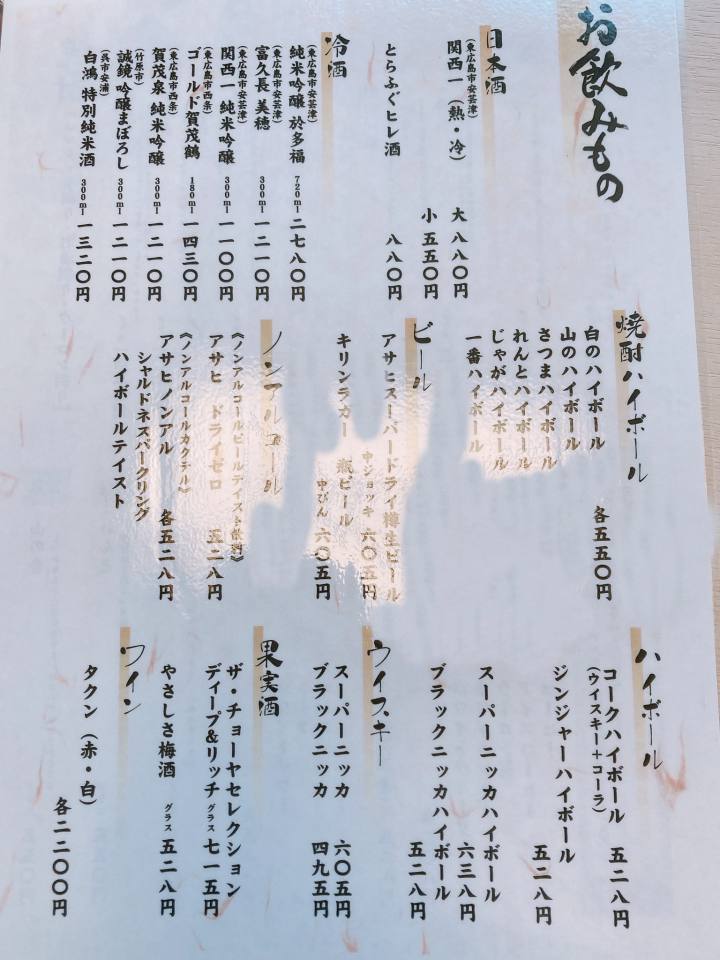 お飲みもの
日本酒
(東広島市安芸津)
関西一 (熱・冷)
大 八八〇円
小 五五〇円
とらふぐヒレ酒
八八〇円
冷酒
(東広島市安芸津)
純米吟醸 於多福 720ml 二七八〇円
(東広島市安芸津)
富久長 美穂 300ml 一二一〇円
(東広島市安芸津)
関西一 純米吟醸 300ml 一一〇〇円
(東広島市西条)
ゴールド賀茂鶴 180ml 一四三〇円
(東広島市西条)
賀茂泉 純米吟醸 300ml 一二一〇円
(竹原市)
誠鏡 吟醸まぼろし 300ml 一二一〇円
(呉市安浦)
白鴻 特別純米酒 300ml 一三二〇円
焼酎ハイボール
白のハイボール
山のハイボール
さつまハイボール
れんとハイボール
じゃがハイボール
一番ハイボール
各五五〇円
ビール
アサヒスーパードライ樽生ビール
中ジョッキ 六〇五円
キリンラガー 瓶ビール
中びん 六〇五円
ノンアルコール
《ノンアルコールビールテイスト飲料》
アサヒ ドライゼロ 五二八円
《ノンアルコールカクテル》
アサヒノンアル 各五二八円
シャルドネスパークリング
ハイボールテイスト
ハイボール
コークハイボール 五二八円
(ウイスキー+コーラ)
ジンジャーハイボール
五二八円
スーパーニッカハイボール
六三八円
ブラックニッカハイボール
五二八円
ウイスキー
スーパーニッカ 六〇五円
ブラックニッカ 四九五円
果実酒
ザ・チョーヤセレクション
ディープ&リッチ グラス 七一五円
やさしさ梅酒 グラス 五二八円
ワイン
タクン (赤・白)
各二二〇〇円